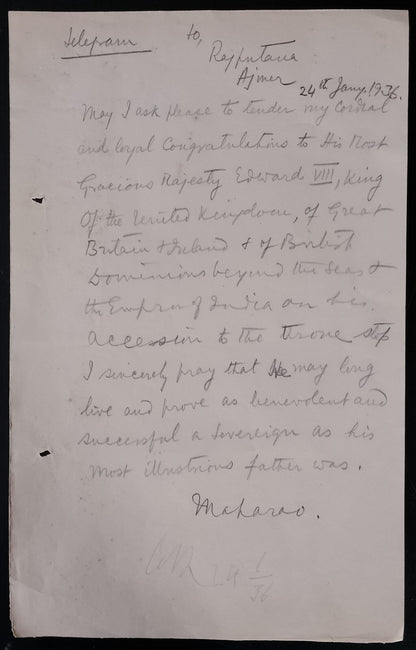 Telegram
to,
Rajputana
Ajmer
24th Jany. 1936.
May I ask please to tender my cordial
and loyal Congratulations to His Most
Gracious Majesty Edward VIII, King
Of the United Kingdom, of Great
Britain & Ireland & of British
Dominions beyond the Seas &
the Emperor of India on his
accession to the throne stop
I sincerely pray that He may long
live and prove as benevolent and
successful a Sovereign as his
most illustrious father was.
Maharao.
24 1/36